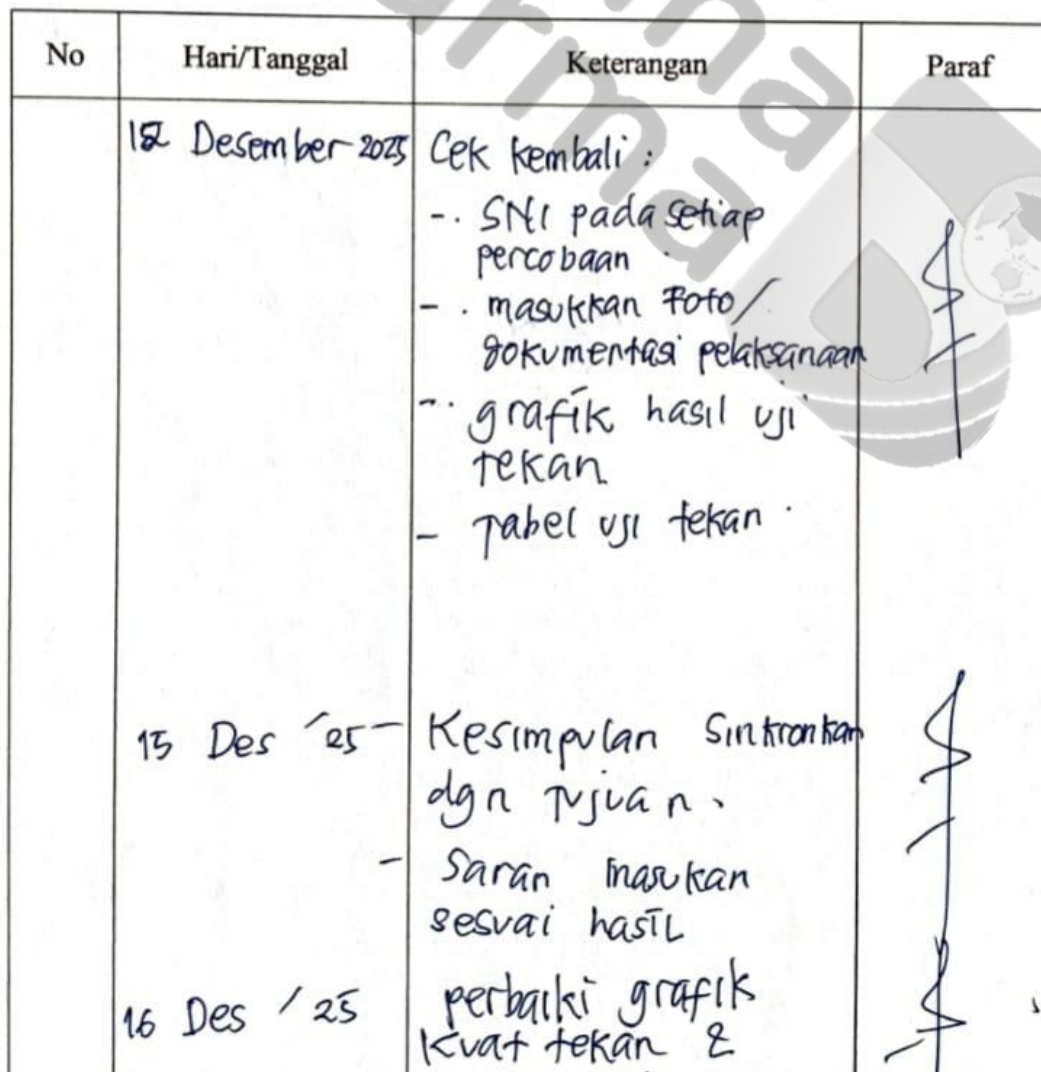 No Hari/Tanggal Keterangan Paraf
12 Desember 2025 Cek kembali :
-. SNI pada setiap
percobaan
-. masukkan Foto/
dokumentasi pelaksanaan
-. grafik hasil uji
tekan
- Tabel uji tekan.
15 Des '25 - Kesimpulan Sinkronkan
dgn Tujuan.
- Saran masukan
sesuai hasil
16 Des / 25 perbaiki grafik
Kuat tekan &